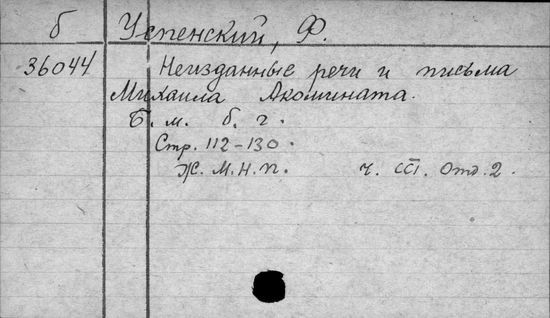 б Успенский, Ф.
36044 Неизданные речи и письма
Михаила Акомината.
Б. м. б. г.
Стр. 112-130.
Ж. М. Н. П. Ч. CCI. Отд. 2.